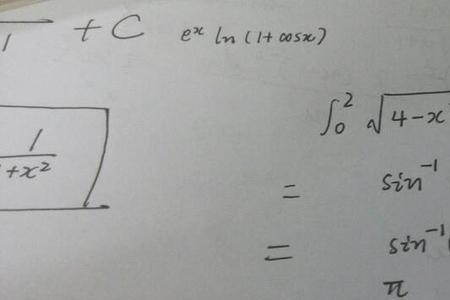 1 + C
e^x ln (1 + cosx)
1
+x²
∫₀² √4-x
= sin⁻¹
= sin⁻¹
π